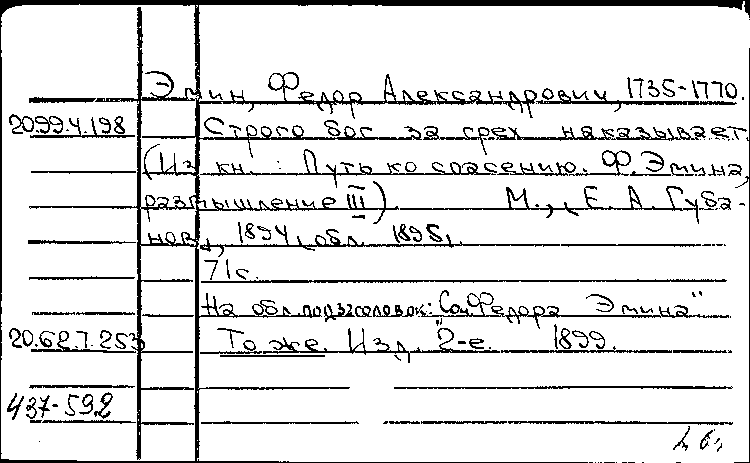 Эмин, Федор Александрович, 1735-1770.
20.99.4.198 Строго бог за грех наказывает
(Из кн.: Путь ко спасению. Ф. Эмина,
размышление III). М., Е. А. Губа-
нов, 1894, обл. 1895.
71 с.
На обл. подзаголовок: "Соч. Федора Эмина"
20.62.7.253 То же. Изд. 2-е. 1899.
437-592